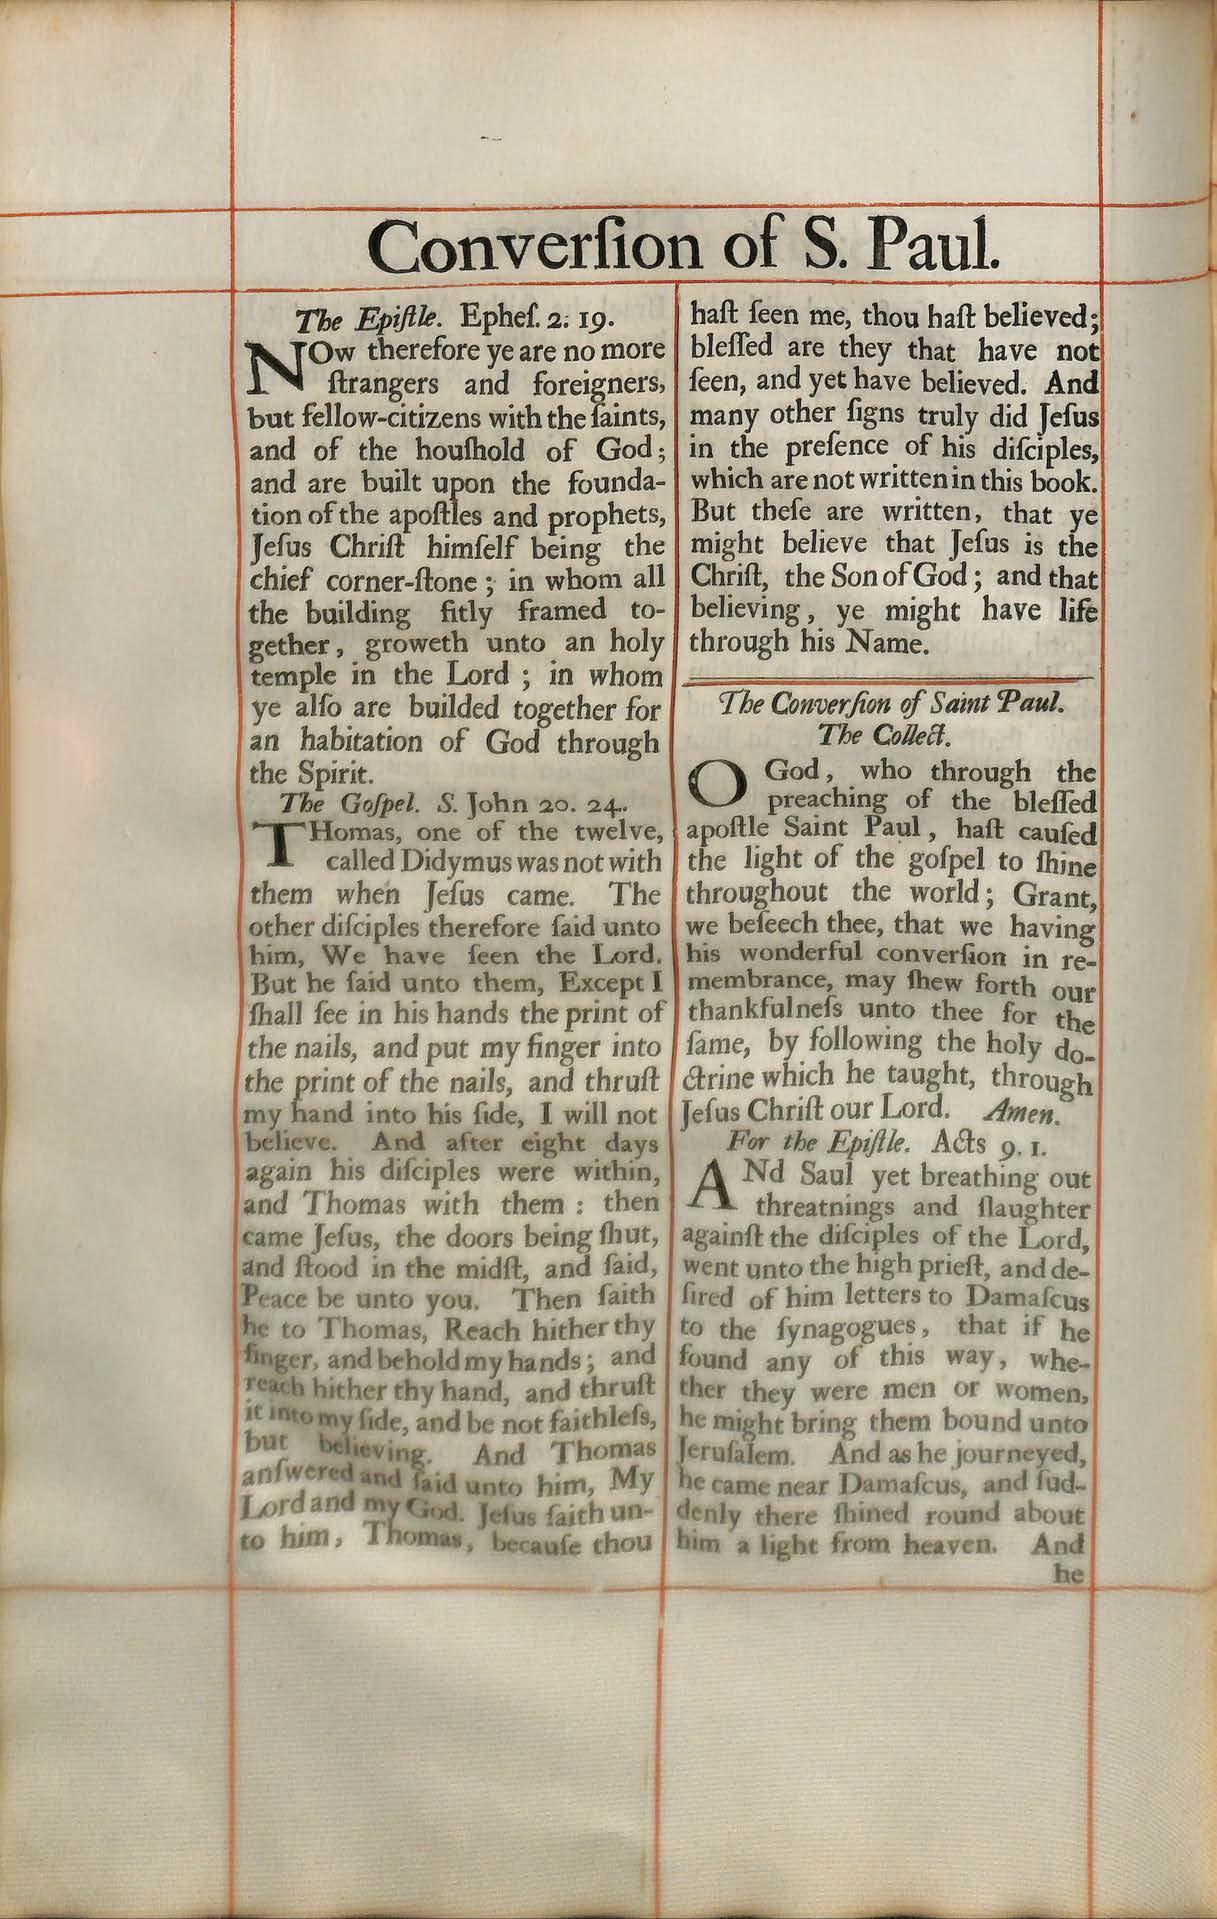 Converſion of S. Paul.
The Epiſtle. Epheſ. 2. 19.
NOw therefore ye are no more
ſtrangers and foreigners,
but fellow-citizens with the ſaints,
and of the houſhold of God;
and are built upon the founda-
tion of the apoſtles and prophets,
Jeſus Chriſt himſelf being the
chief corner-ſtone; in whom all
the building fitly framed to-
gether, groweth unto an holy
temple in the Lord; in whom
ye alſo are builded together for
an habitation of God through
the Spirit.
The Goſpel. S. John 20. 24.
THomas, one of the twelve,
called Didymus was not with
them when Jeſus came. The
other diſciples therefore ſaid unto
him, We have ſeen the Lord.
But he ſaid unto them, Except I
ſhall ſee in his hands the print of
the nails, and put my finger into
the print of the nails, and thruſt
my hand into his ſide, I will not
believe. And after eight days
again his diſciples were within,
and Thomas with them: then
came Jeſus, the doors being ſhut,
and ſtood in the midſt, and ſaid,
Peace be unto you. Then ſaith
he to Thomas, Reach hither thy
finger, and behold my hands; and
reach hither thy hand, and thruſt
it into my ſide, and be not faithleſs,
but believing. And Thomas
anſwered and ſaid unto him, My
Lord and my God. Jeſus ſaith un-
to him, Thomas, becauſe thou
haſt ſeen me, thou haſt believed;
bleſſed are they that have not
ſeen, and yet have believed. And
many other ſigns truly did Jeſus
in the preſence of his diſciples,
which are not written in this book.
But theſe are written, that ye
might believe that Jeſus is the
Chriſt, the Son of God; and that
believing, ye might have life
through his Name.
The Converſion of Saint Paul.
The Collect.
O God, who through the
preaching of the bleſſed
apoſtle Saint Paul, haſt cauſed
the light of the goſpel to ſhine
throughout the world; Grant,
we beſeech thee, that we having
his wonderful converſion in re-
membrance, may ſhew forth our
thankfulneſs unto thee for the
ſame, by following the holy do-
ctrine which he taught, through
Jeſus Chriſt our Lord. Amen.
For the Epiſtle. Acts 9. 1.
ANd Saul yet breathing out
threatnings and ſlaughter
againſt the diſciples of the Lord,
went unto the high prieſt, and de-
ſired of him letters to Damaſcus
to the ſynagogues, that if he
found any of this way, whe-
ther they were men or women,
he might bring them bound unto
Jeruſalem. And as he journeyed,
he came near Damaſcus, and ſud-
denly there ſhined round about
him a light from heaven. And
he